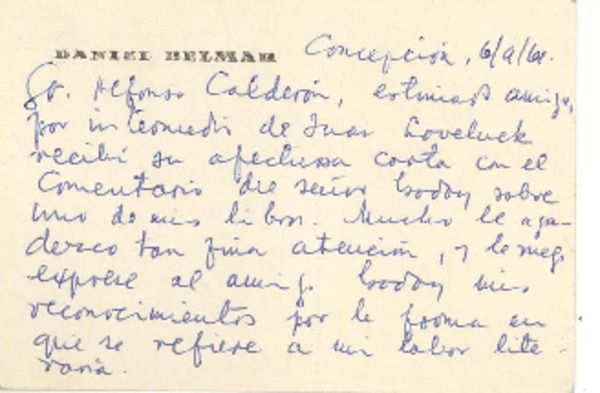 DANIEL BELMAR Concepción, 6/9/61.
Sr. Alfonso Calderón, estimado amigo,
por intermedio de Juan Loveluck
recibí su afectuosa carta con el
Comentario del señor Godoy sobre
uno de mis libros. Mucho le agra-
desco tan fina atención, y le ruego
exprese al amigo Godoy mis
reconocimientos por la forma en
que se refiere a mi labor lite-
raria.